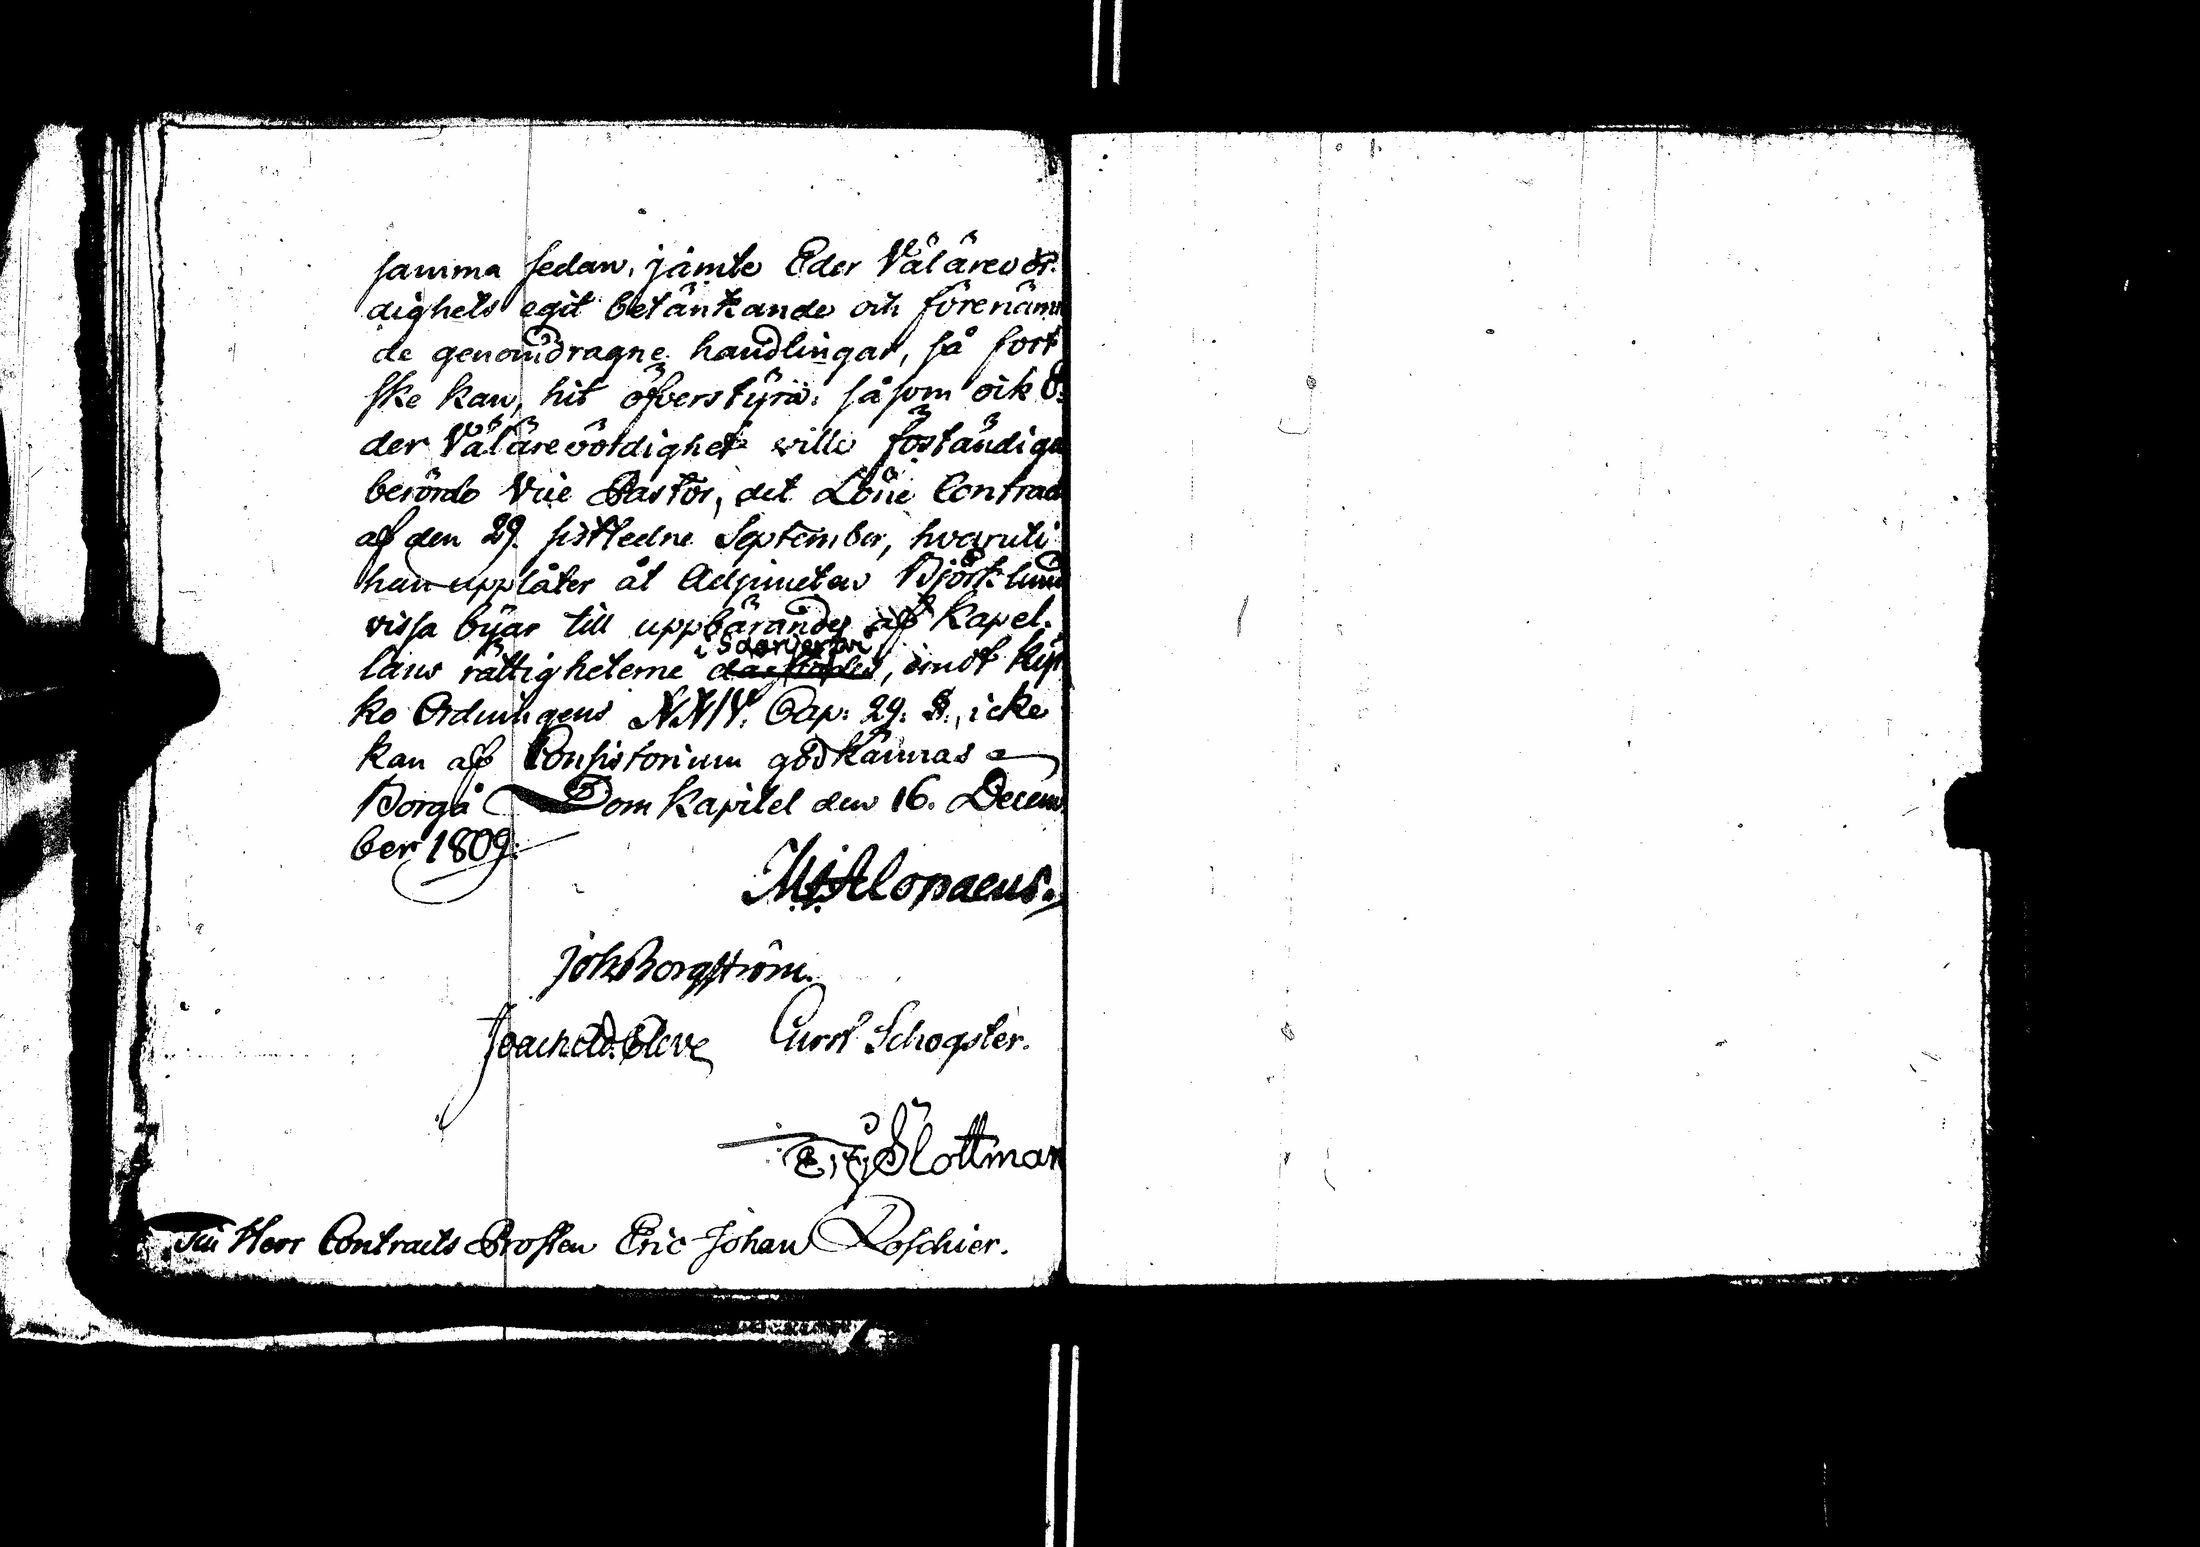 samma sedan, jämte Eder Välärevör-
dighets egit betänkande och förenämn
de genomdragne handlingar, så fort
ske kan, hit öfverstyra: såsom ock E-
der Välärevördighet wille förständiga
berörde Vice Pastor, det Löne Contract
af den 29. sistledne September, hvaruti
han upplåter åt Adjuncten Björklund
vissa byar till uppbärandes af Kapel-
i Saarijerfwi
lans rättigheterne, emot Kyr
ko Ordningens XXIV. Cap: 29. §., icke
kan af Consistorium godkännas
Borgå Dom Kapitel den 16. Decem
ber 1809.
M: Alopaeus.
Joh Borgström.
Joach Ad. Cleve Curt Schogster.
Slottman
Till Herr Contracts Prosten Eric Johan Roschier.